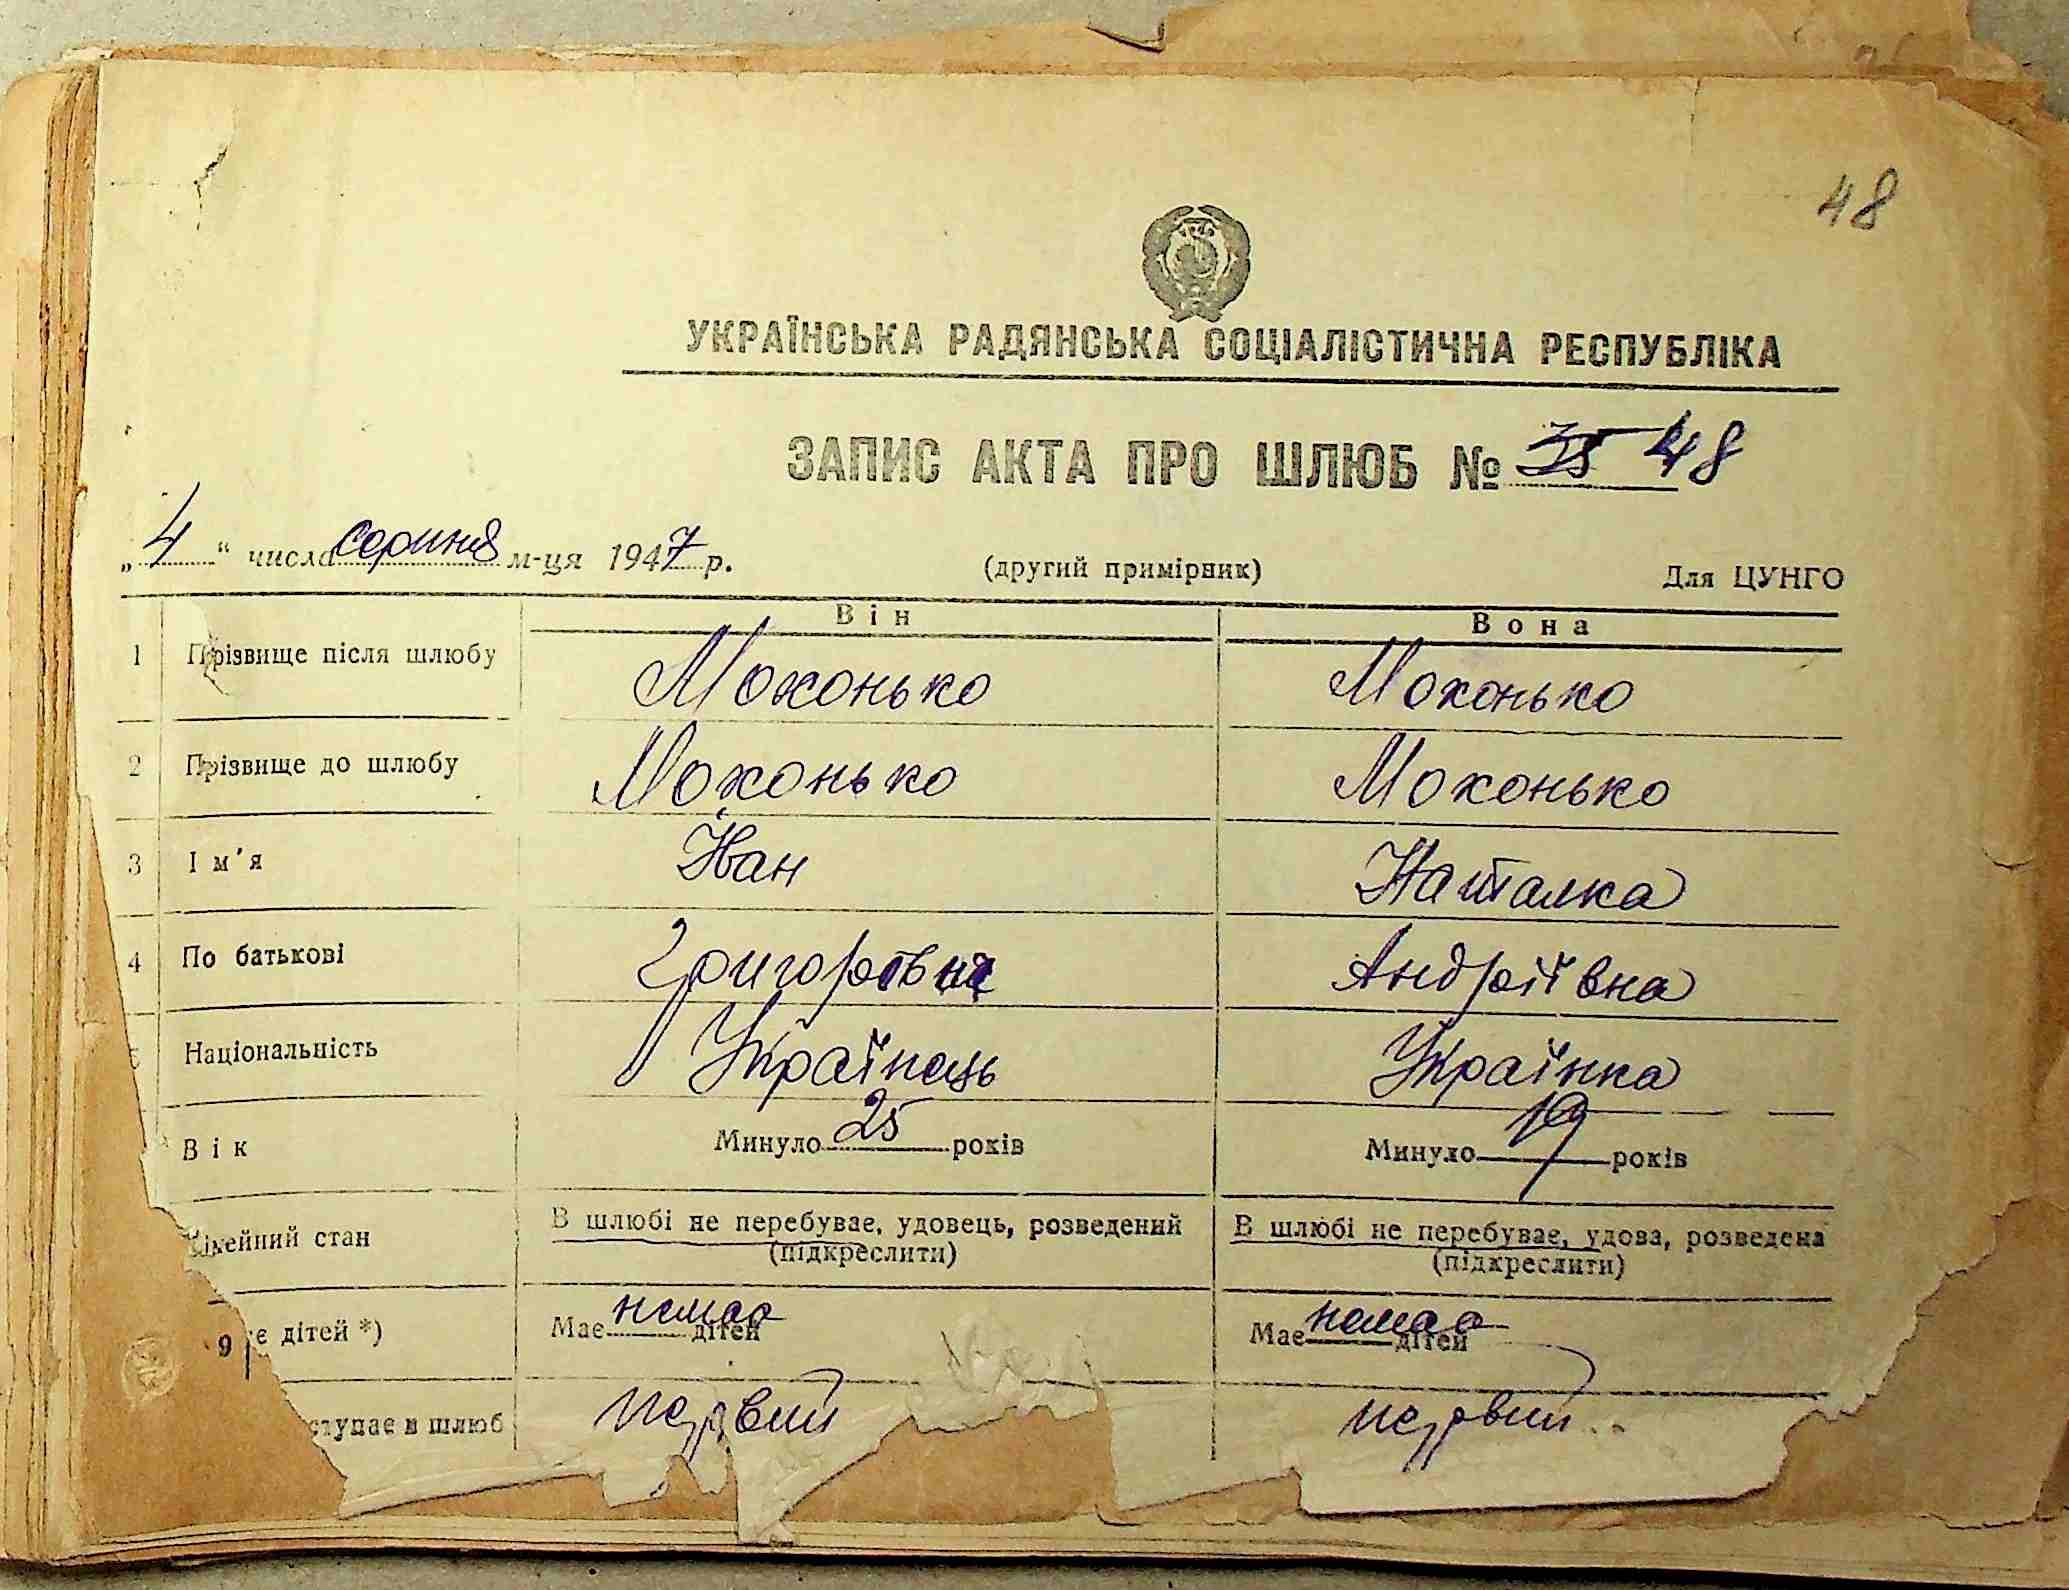 48
УКРАЇНСЬКА РАДЯНСЬКА СОЦІАЛІСТИЧНА РЕСПУБЛІКА
ЗАПИС АКТА ПРО ШЛЮБ № 35 48
„4“ числа серпня м-ця 1947 р. (другий примірник) Для ЦУНГО
Він Вона
1 Прізвище після шлюбу Мохонько Мохонько
2 Прізвище до шлюбу Мохонько Мохонько
3 Ім'я Іван Наталка
4 По батькові Григорівна Андріївна
Національність Українець Українка
Вік Минуло 25 років Минуло 19 років
імейний стан В шлюбі не перебуває, удовець, розведений В шлюбі не перебуває, удова, розведена
(підкреслити) (підкреслити)
9 є дітей *) Має немає дітей Має немає дітей
ступає в шлюб первий первий